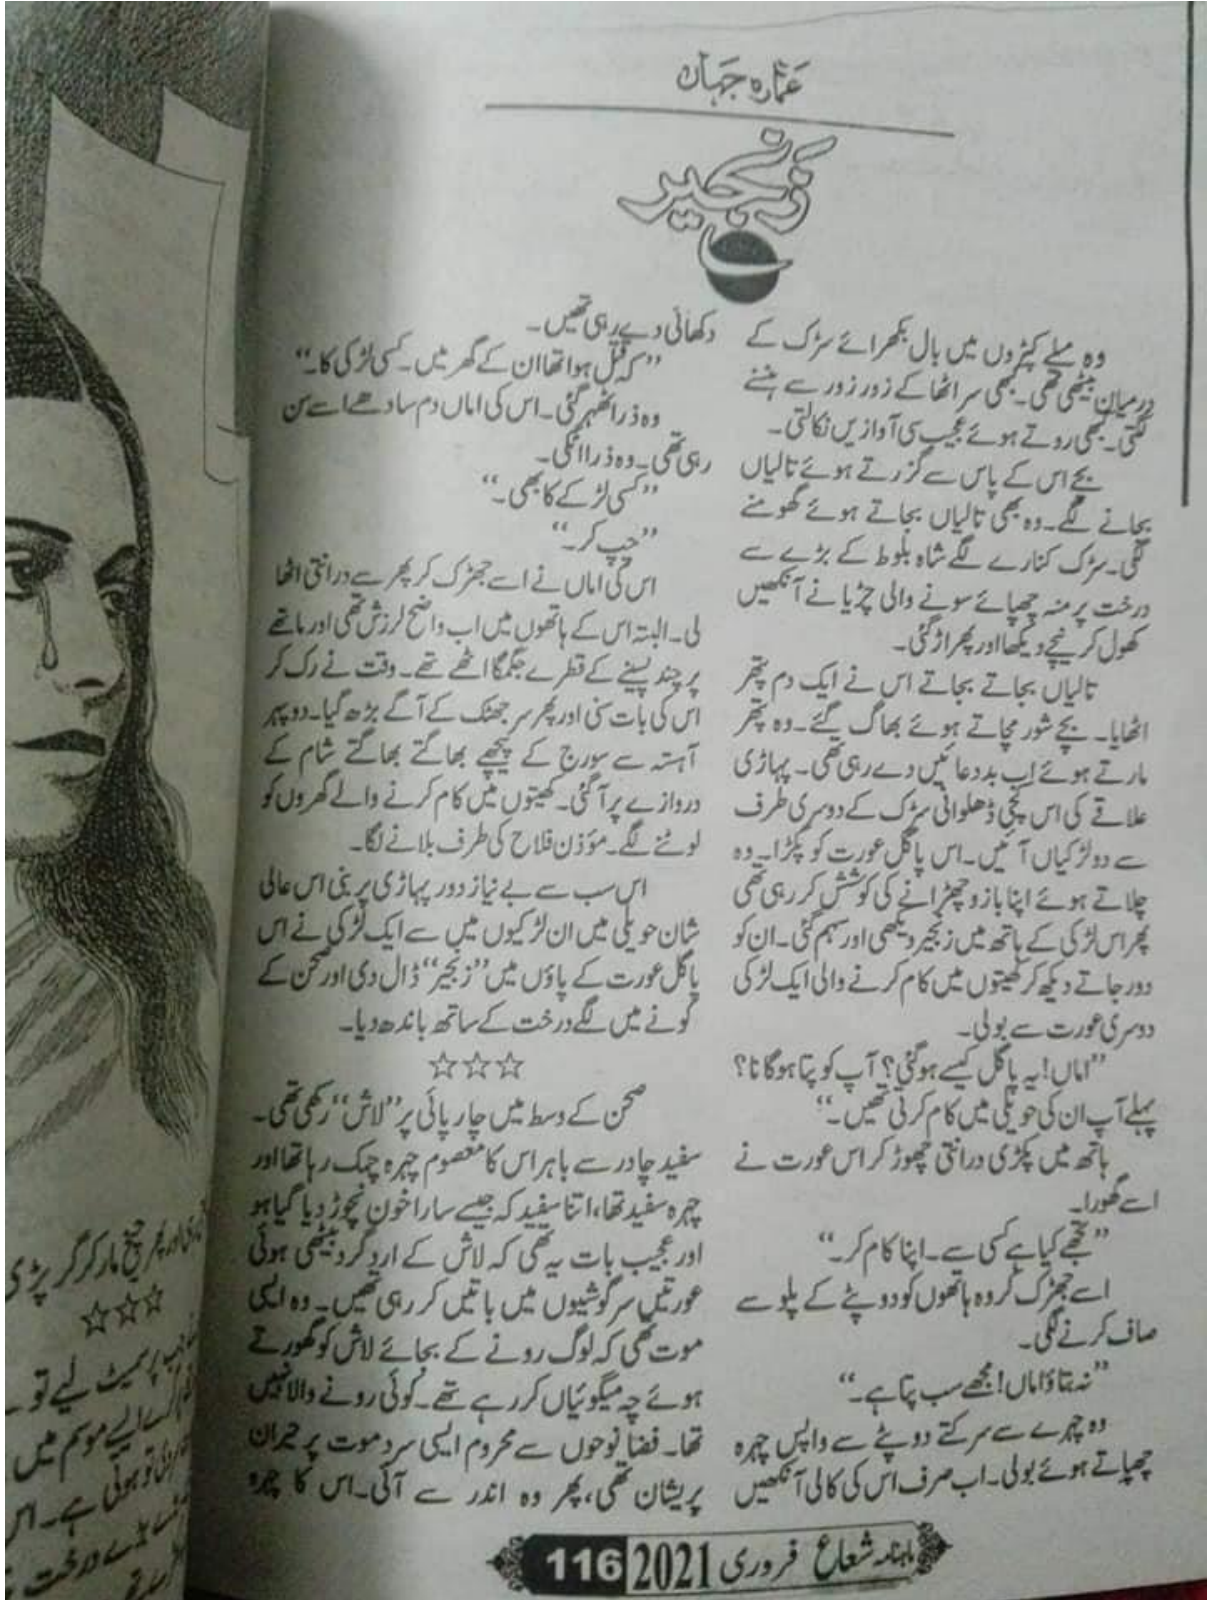 عمّارہ جہاں
زنجیر
وہ میلے کپڑوں میں بال بکھرائے سڑک کے
درمیان بیٹھی تھی۔ کبھی سر اٹھا کے زور زور سے ہنسنے
لگتی۔ کبھی روتے ہوئے عجیب سی آوازیں نکالتی۔
بچے اس کے پاس سے گزرتے ہوئے تالیاں
بجانے لگے۔ وہ بھی تالیاں بجاتے ہوئے گھومنے
لگی۔ سڑک کنارے لگے شاہ بلوط کے بڑے سے
درخت پر منہ چھپائے سونے والی چڑیا نے آنکھیں
کھول کر نیچے دیکھا اور پھر اڑ گئی۔
تالیاں بجاتے بجاتے اس نے ایک دم پتھر
اٹھایا۔ بچے شور مچاتے ہوئے بھاگ گئے۔ وہ پتھر
مارتے ہوئے اب بددعائیں دے رہی تھی۔ پہاڑی
علاقے کی اس کچی ڈھلوانی سڑک کے دوسری طرف
سے دو لڑکیاں آئیں۔ اس پاگل عورت کو پکڑا۔ وہ
چلاتے ہوئے اپنا بازو چھڑانے کی کوشش کر رہی تھی
پھر اس لڑکی کے ہاتھ میں زنجیر دیکھی اور سہم گئی۔ ان کو
دور جاتے دیکھ کر کھیتوں میں کام کرنے والی ایک لڑکی
دوسری عورت سے بولی۔
”اماں! یہ پاگل کیسے ہو گئی؟ آپ کو پتا ہوگا نا؟
پہلے آپ ان کی حویلی میں کام کرتی تھیں۔“
ہاتھ میں پکڑی درانتی چھوڑ کر اس عورت نے
اسے گھورا۔
”تجھے کیا ہے کسی سے۔ اپنا کام کر۔“
اسے جھڑک کر وہ ہاتھوں کو دوپٹے کے پلو سے
صاف کرنے لگی۔
”نہ بتاؤ اماں! مجھے سب پتا ہے۔“
وہ چہرے سے سرکتے دوپٹے سے واپس چہرہ
چھپاتے ہوئے بولی۔ اب صرف اس کی کالی آنکھیں
دکھائی دے رہی تھیں۔
”کہ قتل ہوا تھا ان کے گھر میں۔ کسی لڑکی کا۔“
وہ ذرا ٹھہر گئی۔ اس کی اماں دم سادھے اسے سن
رہی تھی۔ وہ ذرا اٹکی۔
”کسی لڑکے کا بھی۔“
”چپ کر۔“
اس کی اماں نے اسے جھڑک کر پھر سے درانتی اٹھا
لی۔ البتہ اس کے ہاتھوں میں اب واضح لرزش تھی اور ماتھے
پر چند پسینے کے قطرے جگمگا اٹھے تھے۔ وقت نے رک کر
اس کی بات سنی اور پھر سر جھٹک کے آگے بڑھ گیا۔ دوپہر
آہستہ سے سورج کے پیچھے بھاگتے بھاگتے شام کے
دروازے پر آ گئی۔ کھیتوں میں کام کرنے والے گھروں کو
لوٹنے لگے۔ مؤذن فلاح کی طرف بلانے لگا۔
اس سب سے بے نیاز دور پہاڑی پر بنی اس عالی
شان حویلی میں ان لڑکیوں میں سے ایک لڑکی نے اس
پاگل عورت کے پاؤں میں ”زنجیر“ ڈال دی اور صحن کے
کونے میں لگے درخت کے ساتھ باندھ دیا۔
☆☆☆
صحن کے وسط میں چارپائی پر ”لاش“ رکھی تھی۔
سفید چادر سے باہر اس کا معصوم چہرہ چمک رہا تھا اور
چہرہ سفید تھا، اتنا سفید کہ جیسے سارا خون نچوڑ دیا گیا ہو
اور عجیب بات یہ تھی کہ لاش کے ارد گرد بیٹھی ہوئی
عورتیں سرگوشیوں میں باتیں کر رہی تھیں۔ وہ ایسی
موت تھی کہ لوگ رونے کے بجائے لاش کو گھورتے
ہوئے چہ میگوئیاں کر رہے تھے۔ کوئی رونے والا نہیں
تھا۔ فضا نوحوں سے محروم ایسی سرد موت پر حیران
پریشان تھی، پھر وہ اندر سے آئی۔ اس کا چہرہ
اور پھر چیخ مار کر گر پڑی
☆☆☆
سمیٹ لیے تو
ایسے موسم میں
تو ہوتی ہے۔ اس
درخت
ماہنامہ شعاع فروری 2021 116